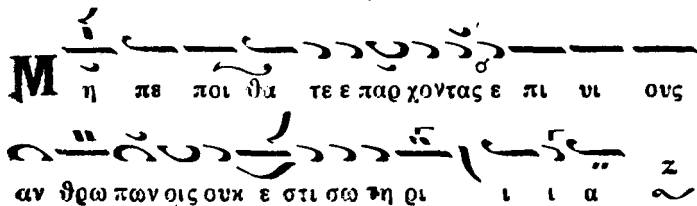 Μ η πε ποι θα τε ε παρ χοντας ε πι υι ους
αν θρω πων οις ουκ ε στι σω τη ρι ι ι α